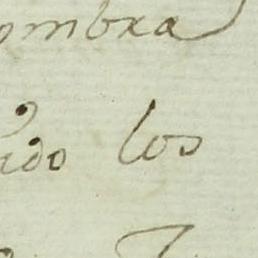 ombra
ido los